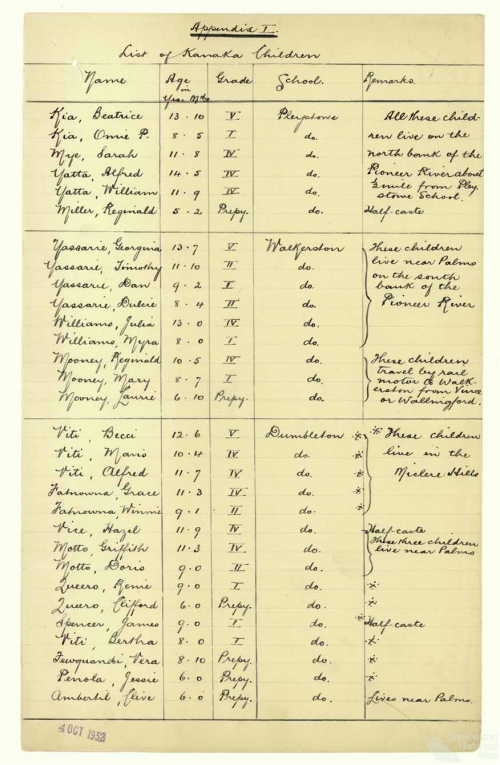 Appendix I.
List of Kanaka Children
Name Age in Yrs. Mths Grade School. Remarks.
Kia, Beatrice 13.10 V Pleystowe All these child-
Kia, Omie P. 8.5 I do. ren live on the
Mye, Sarah 11.8 IV do. north bank of the
Yatta, Alfred 14.5 IV do. Pioneer River about
Yatta, William 11.9 IV do. ½ mile from Pley
stowe School.
Miller, Reginald 5.2 Prepy. do. Half-caste
Yassarie, Georgina 13.7 V Walkerston These children
Yassarie, Timothy 11.10 II do. live near Palms
Yassarie, Dan 9.2 I do. on the south
Yassarie, Dulcie 8.4 II do. bank of the
Williams, Julia 13.0 IV do. Pioneer River
Williams, Myra 8.0 I do.
Mooney, Reginald 10.5 IV do. These children
Mooney, Mary 8.7 I do. travel by rail
Mooney, Laurie 6.10 Prepy. do. motor to Walk-
erston from
or Wallingford.
Viti, Becci 12.6 V Dumbleton * * These children
Viti, Mavis 10.4 IV do. * live in the
Viti, Alfred 11.7 IV do. * Miclere Hills
Fatnowna, Grace 11.3 IV do. *
Fatnowna, Winnie 9.1 II do. *
Vice, Hazel 11.9 IV do. Half-caste
Motto, Griffith 11.3 IV do. These three children
Motto, Doris 9.0 II do. live near Palms
Quero, Renie 9.0 I do. *
Quero, Clifford 6.0 Prepy. do. *
Spencer, James 9.0 I do. * Half-caste
Viti, Bertha 8.0 I do. *
Vera 8.10 Prepy. do. *
Penola, Jessie 6.0 Prepy. do. *
Clive 6.0 Prepy. do. Lives near Palms.
4 OCT 1932